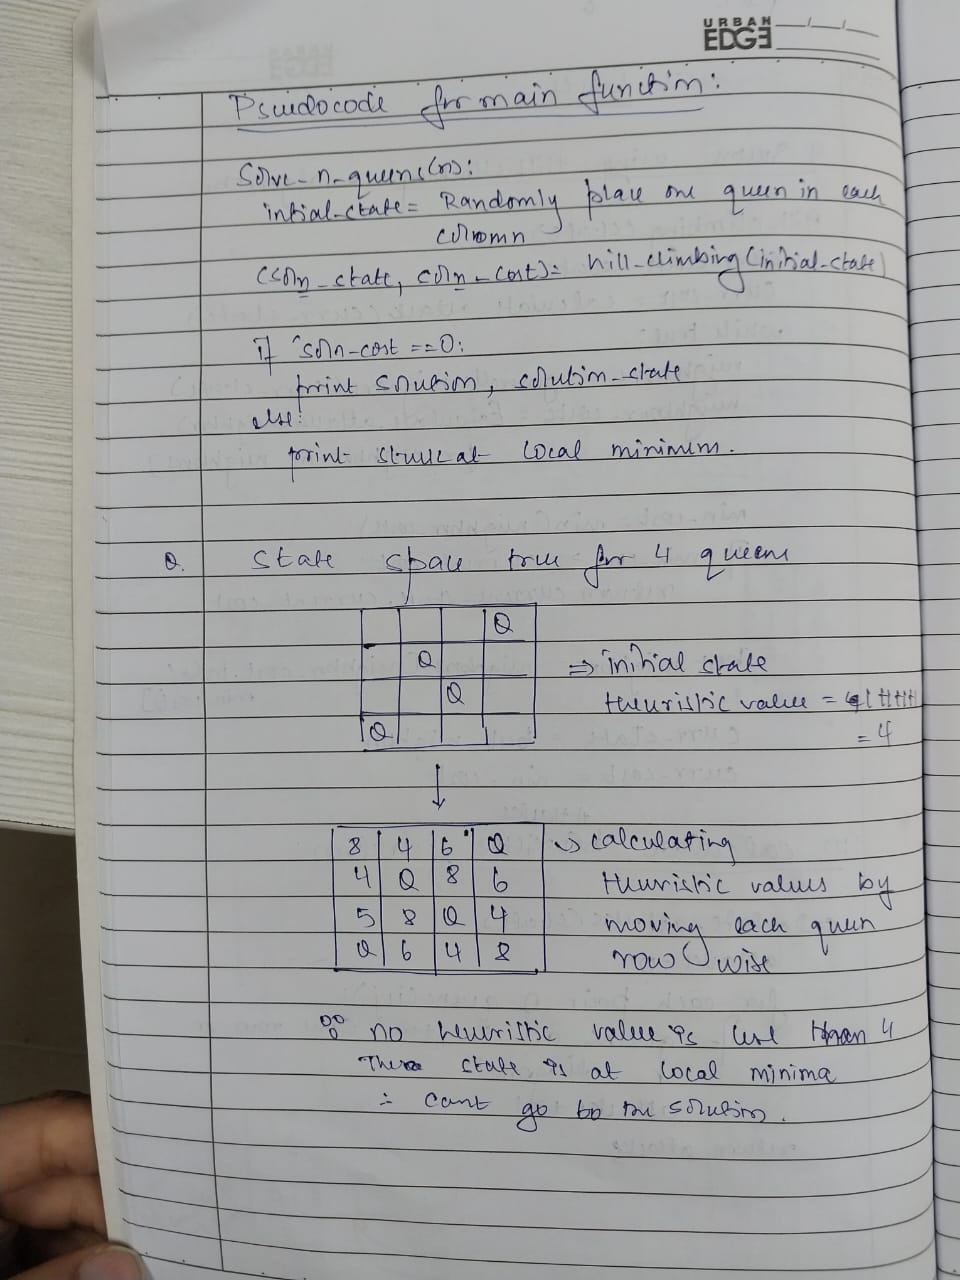 URBAN
EDGE
Psuedocode for main function:
Solve-n-queens(n):
intial-state= Randomly place one queen in each
column
(soln_state, soln-cost)= hill-climbing(initial-state)
if soln-cost ==0:
print solution, solution-state
else:
print stuck at local minimum.
Q. State space tree for 4 queens
Q
Q
Q
Q
⇒ initial state
Heuristic value =
= 4
↓
8 4 6 Q
4 Q 8 6
5 8 Q 4
Q 6 4 8
→ calculating
Heuristic values by
moving each queen
row wise
∵ no heuristic value is less than 4
The state is at local minima
∴ cant go to the solution.